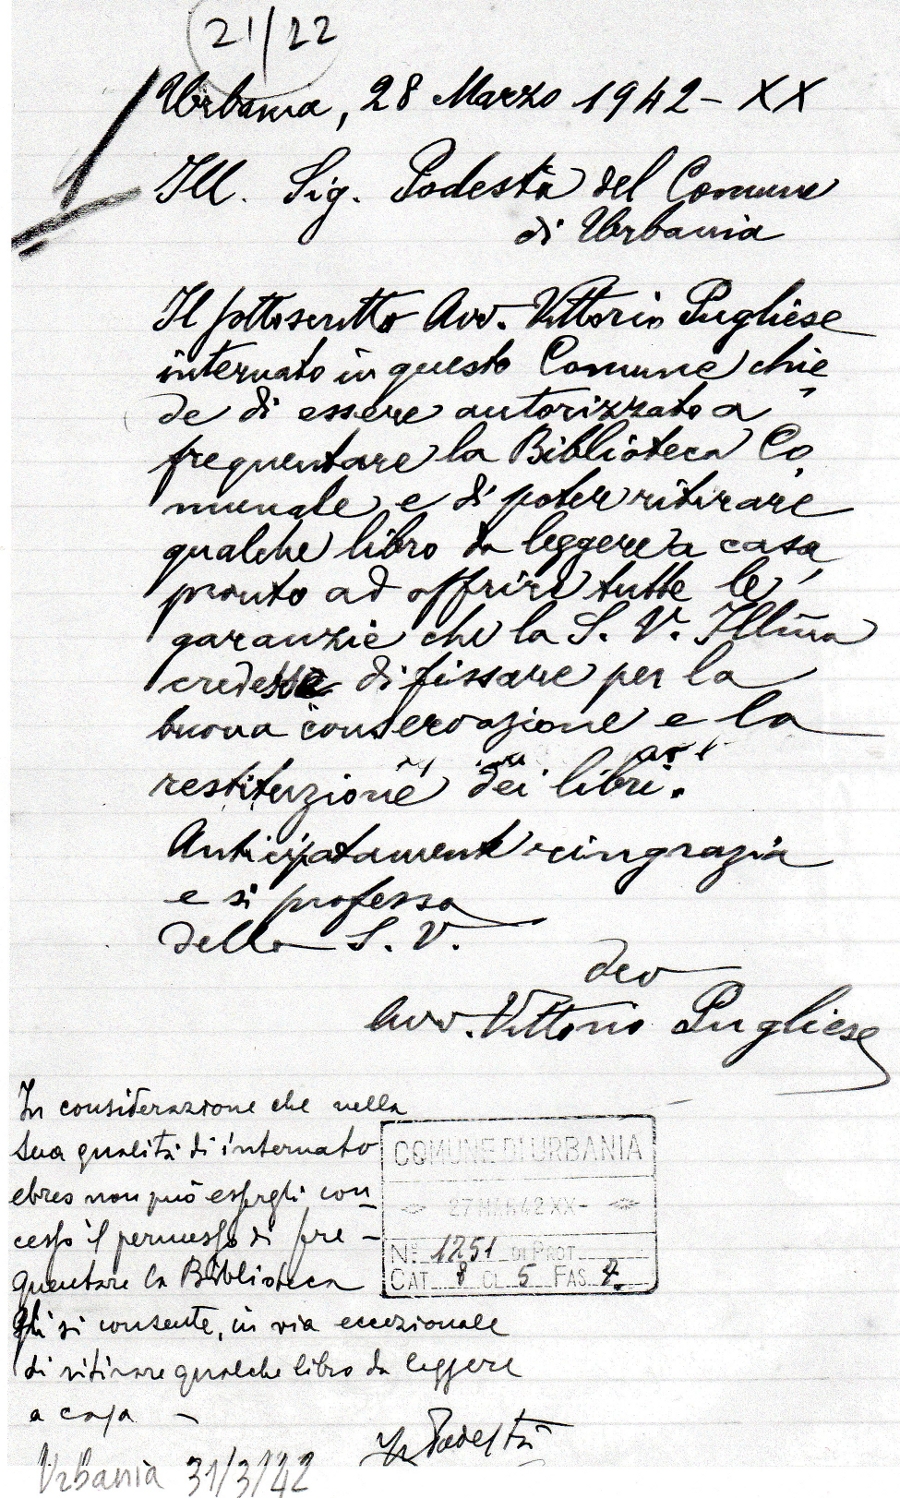 21/22
Urbania, 28 Marzo 1942 - XX
Ill. Sig. Podestà del Comune
di Urbania
Il sottoscritto Avv. Vittorio Pugliese
internato in questo Comune chie
de di essere autorizzato a
frequentare la Biblioteca Co
munale e di poter ritirare
qualche libro da leggere a casa
pronto ad offrire tutte le
garanzie che la S. V. Ill̃ma
credesse di fissare per la
buona conservazione e la
restituzione dei libri.
Anticipatamente ringrazia
e si professa
della S. V.
dev
Avv. Vittorio Pugliese
In considerazione che nella
sua qualità di internato
ebreo non può essergli con_
cesso il permesso di fre-
quentare la Biblioteca
gli si consente, in via eccezionale
di ritirare qualche libro da leggere
a casa -
Il Podestà
Urbania 31/3/42
COMUNE DI URBANIA
27 MAR 42 XX-
N° 1251 DI PROT.
CAT. 8 CL 5 FAS 7.